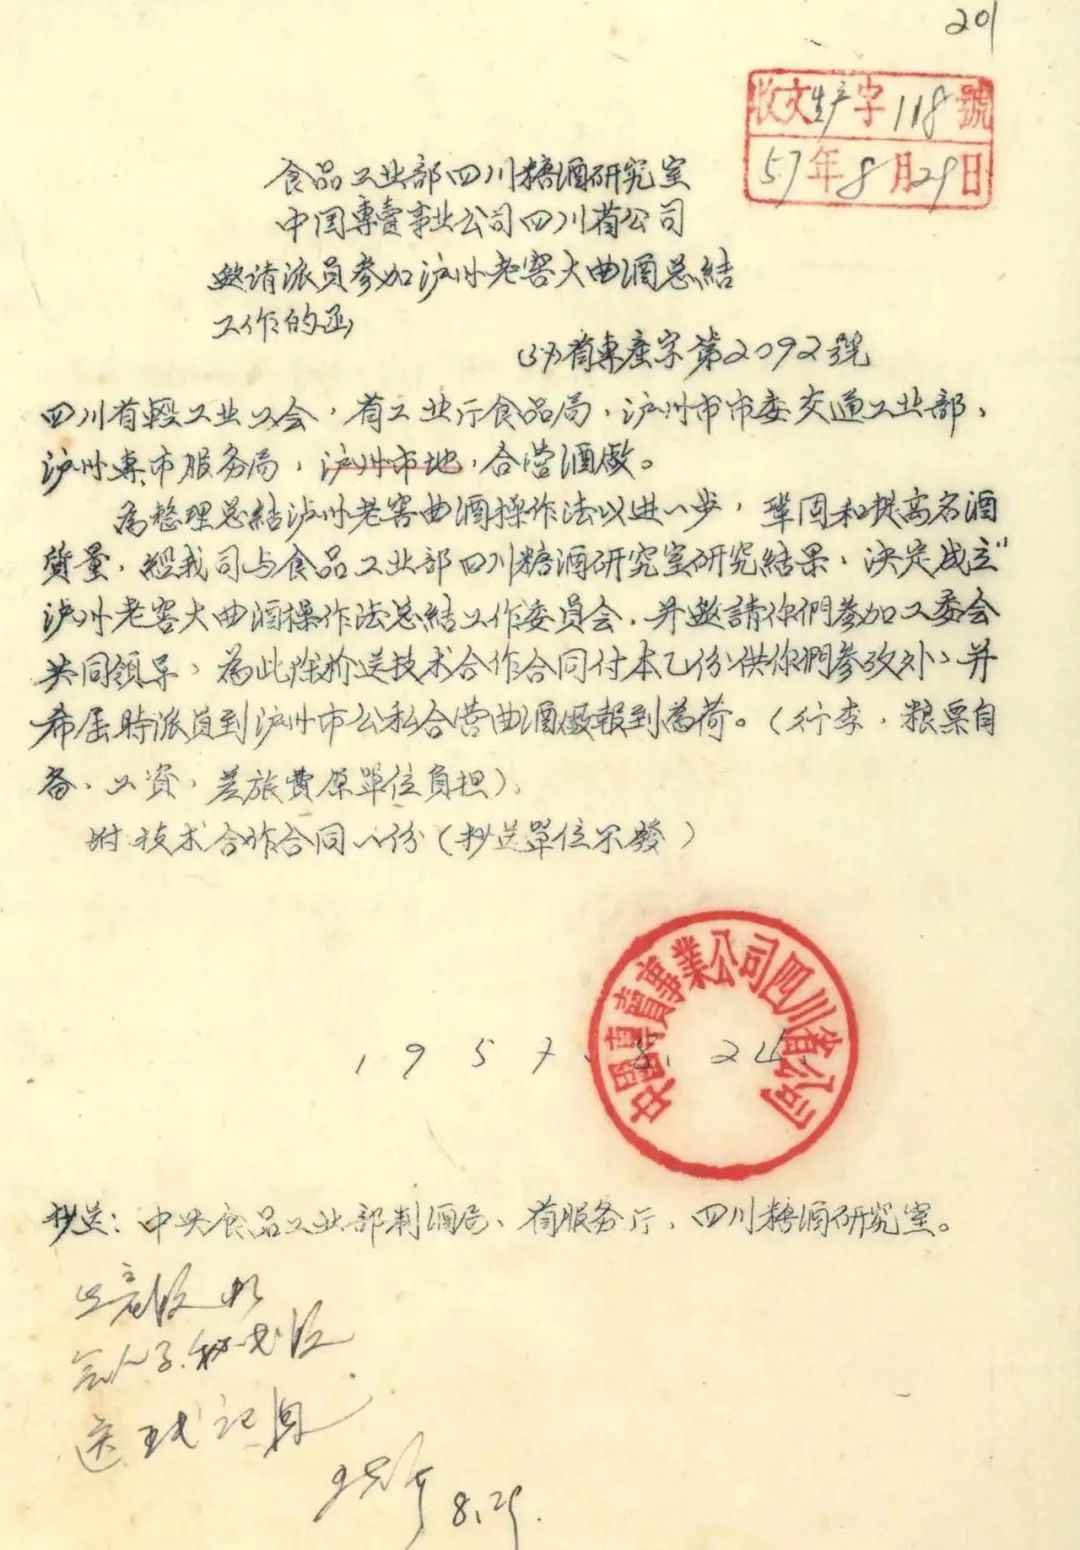 201
收文生产字118號
57年8月29日
食品工业部四川糖酒研究室
中国專賣事业公司四川省公司
邀请派员参加泸州老窖大曲酒总結
工作的函
(57)省專產字第2092號
四川省轻工业工会，省工业厅食品局，泸州市市委交通工业部，
泸州專市服务局，泸州市地，合营酒廠。
為整理总結泸州老窖曲酒操作法以进一步，鞏固和提高名酒
質量，經我司与食品工业部四川糖酒研究室研究結果，决定成立“
泸州老窖大曲酒操作法总結工作委员会，并邀請你們参加工委会
共同领导，為此除抄送技术合作合同付本乙份供你們参攷外，并
希届時派员到泸州市公私合营曲酒廠報到為荷。（行李，粮票自
备，工資，差旅費原單位負担），
附技术合作合同一份（抄送單位不發）
中國專賣事業公司四川省公司
1957.8.24.
抄送：中央食品工业部制酒局、省服务厅，四川糖酒研究室。
8.29.